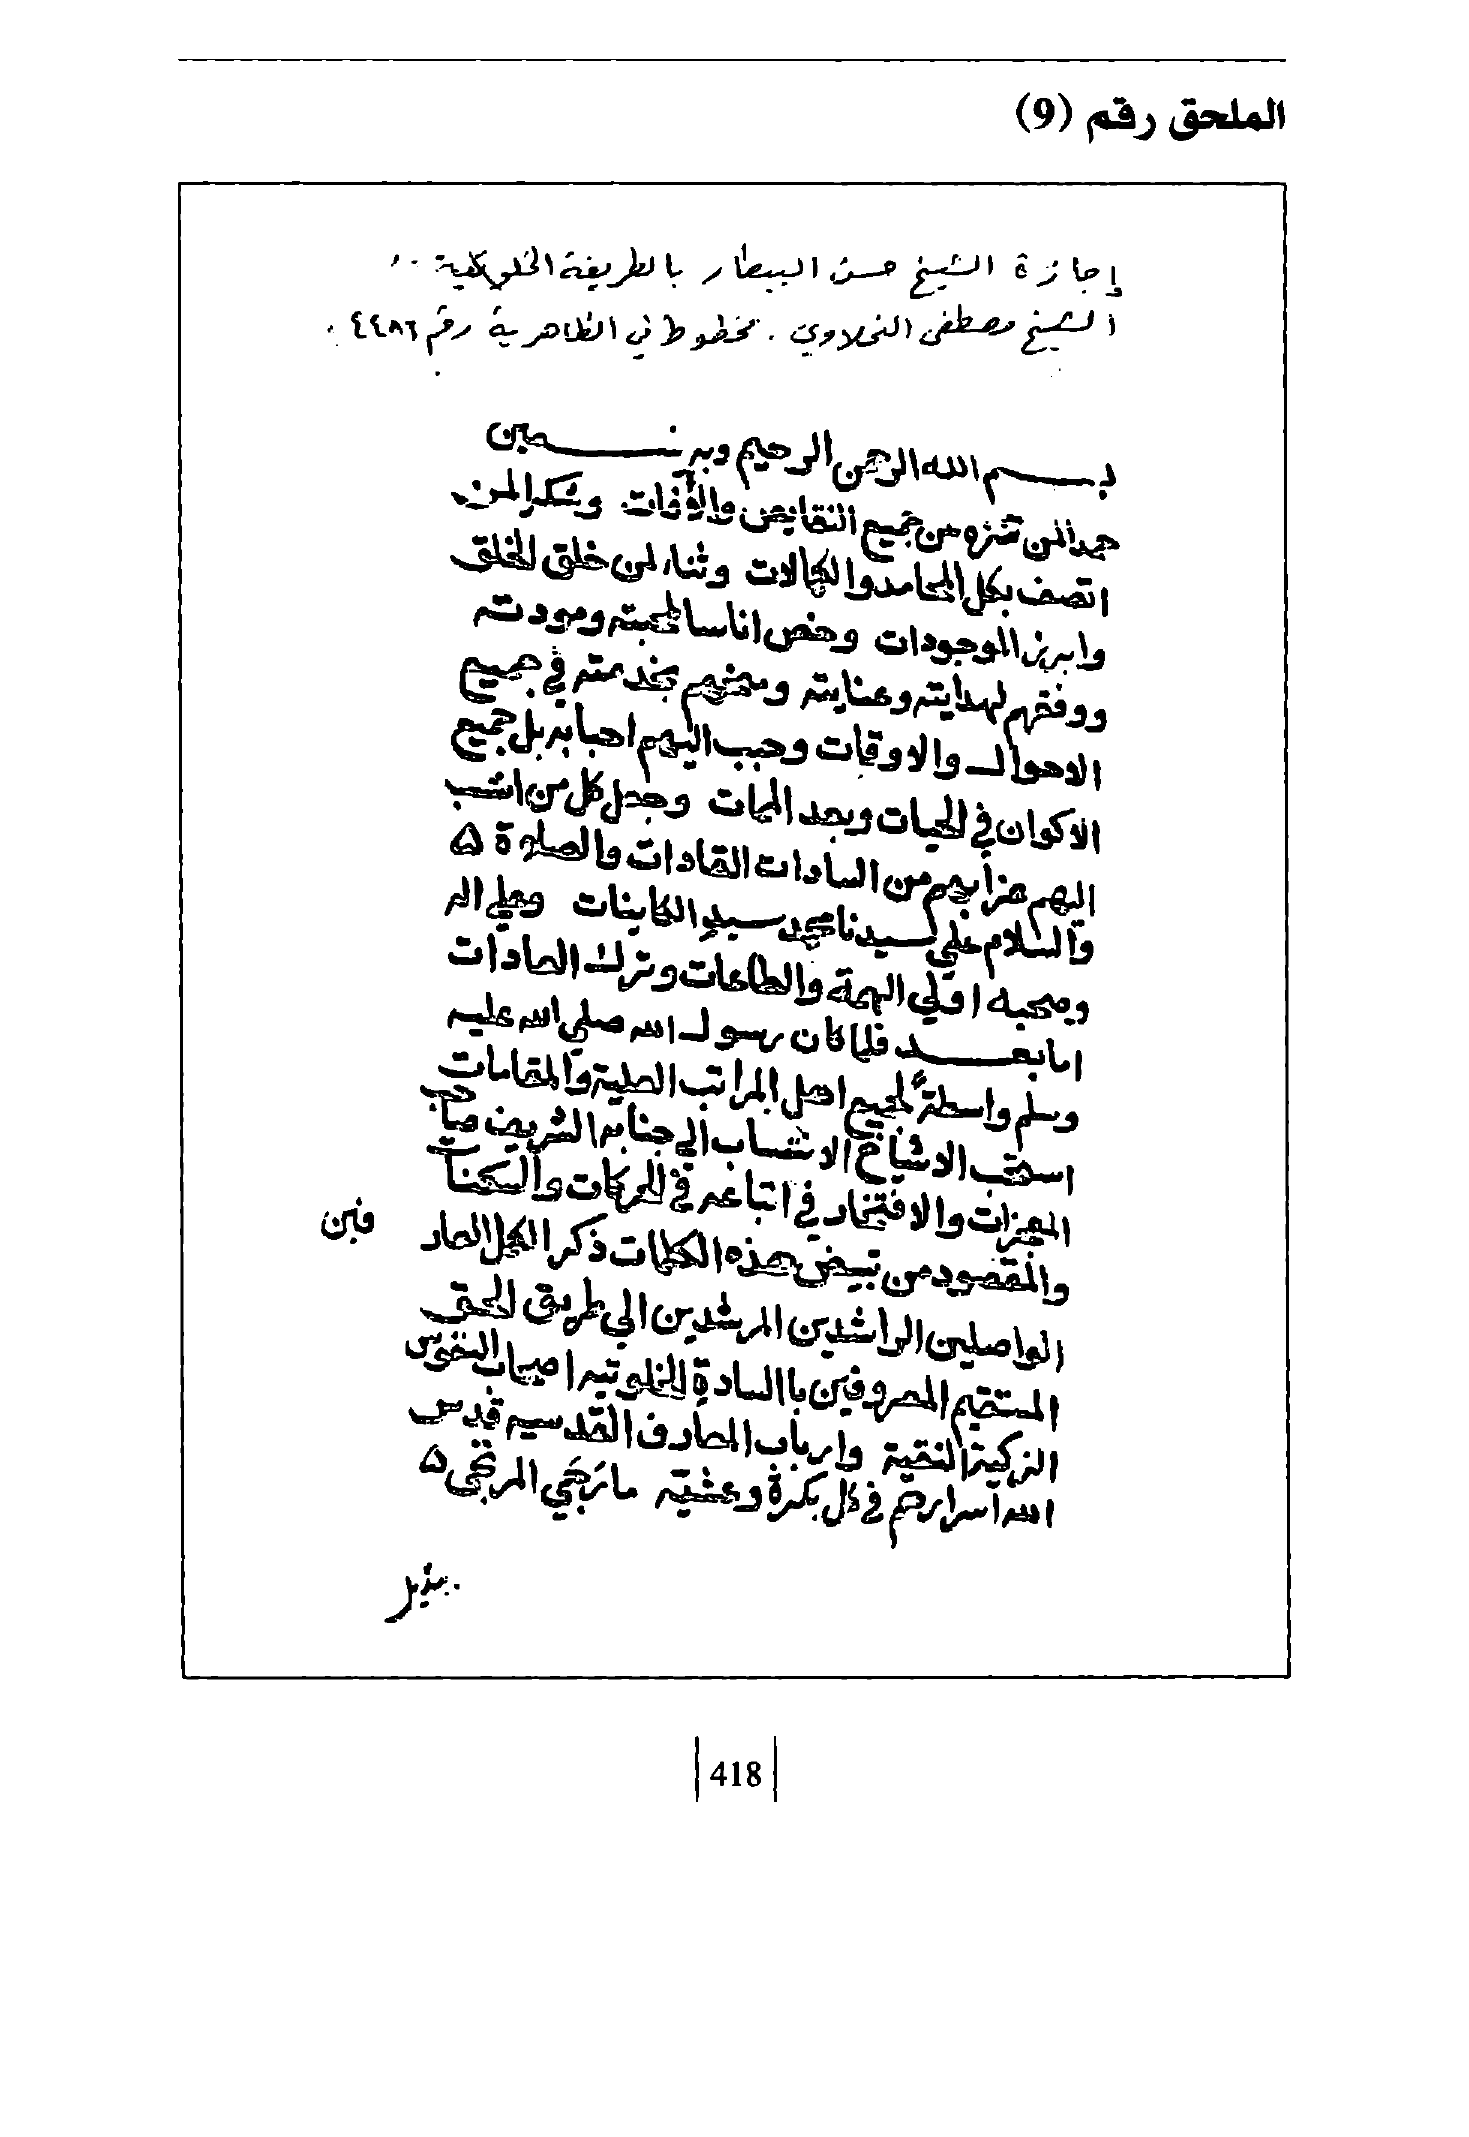 الملحق رقم (9)
إجازة الشيخ حسن البيطار بالطريقة الخلوتية
الشيخ مصطفى النحلاوي . مخطوط في الظاهرية رقم ٤٤٨٦ .
بسم الله الرحمن الرحيم وبه نستعين
حمدا لمن تنزه من جميع النقايص والآفات وشكرا لمن
اتصف بكل المحامد والكمالات وثناء لمن خلق الخلق
وابرز الموجودات وخص اناسا لمحبته ومودته
ووفقهم لهدايته وعنايته ومنحهم بخدمته في جميع
الاحوال والاوقات وحبب اليهم احبابه بل جميع
الاكوان في الحيات وبعد الممات وجعل كل من انتسب
اليهم من السادات القادات والصلوة
والسلام على سيدنا محمد سيد الكاينات وعلى اله
وصحبه اولي الهمة والطاعات وترك العادات
اما بعد فلما كان رسول الله صلى الله عليه
وسلم واسطة لجميع اهل المراتب العلية والمقامات
استحب الاشياخ الانتساب الي جنابه الشريف صاحب
المعجزات والافتخار في اتباعه في الحركات والسكنات
والمقصود من تبييض هذه الكلمات ذكر الكمل العار
فين
الواصلين الراشدين المرشدين الي طريق الحق
المستقيم المعروفين باالسادة الخلوتيه اصحاب النفوس
الزكية النقية وارباب المعارف القدسيه قدس
الله اسرارهم في كل بكرة وعشية ما ترجي المرتجي
418